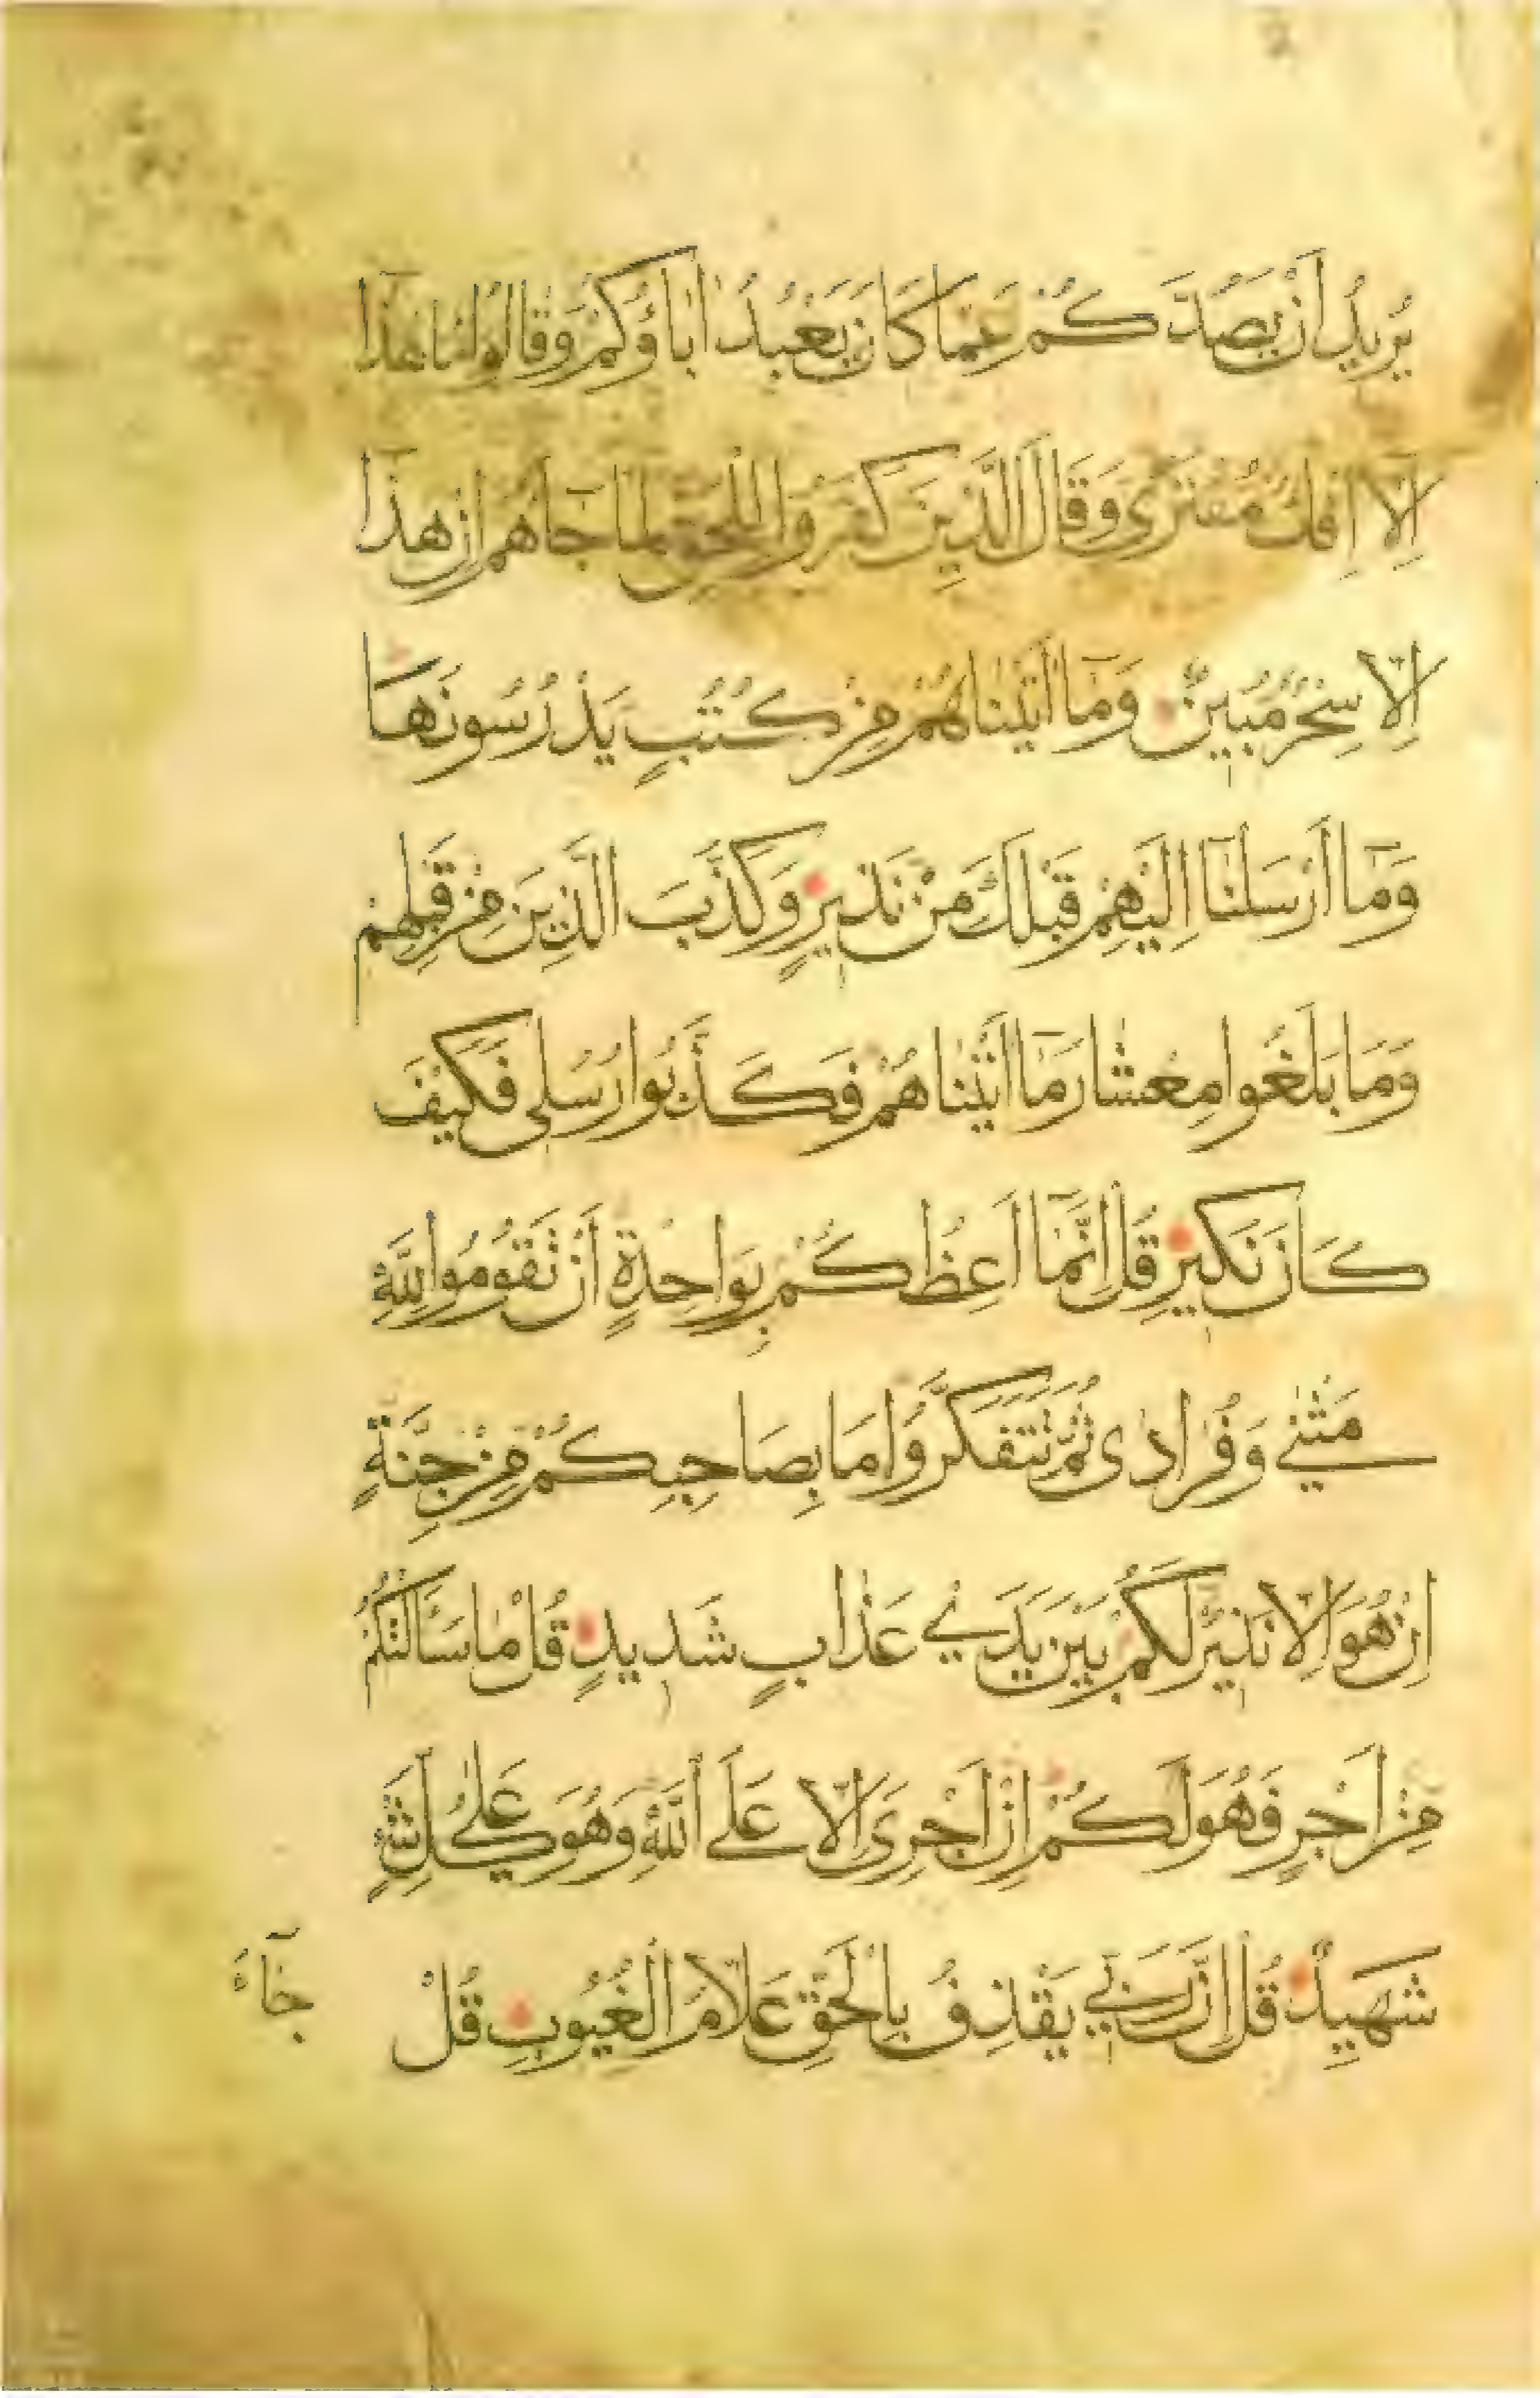 يُرِيدُ اَنْ يَصُدَّكُمْ عَمَّا كَانَ يَعْبُدُ اٰبَاؤُكُمْ وَقَالُوا مَا هٰذَا
اِلَّا اِفْكٌ مُفْتَرًى وَقَالَ الَّذِينَ كَفَرُوا لِلْحَقِّ لَمَّا جَاَهُمْ اِنْ هٰذَا
اِلَّا سِحْرٌ مُبِينٌ وَمَٓا اٰتَيْنَاهُمْ مِنْ كُتُبٍ يَدْرُسُونَهَا
وَمَٓا اَرْسَلْنَٓا اِلَيْهِمْ قَبْلَكَ مِنْ نَذِيرٍ وَكَذَّبَ الَّذِينَ مِنْ قَبْلِهِمْ
وَمَا بَلَغُوا مِعْشَارَ مَٓا اٰتَيْنَاهُمْ فَكَذَّبُوا رُسُلِى فَكَيْفَ
كَانَ نَكِيرِ قُلْ اِنَّمَٓا اَعِظُكُمْ بِوَاحِدَةٍ اَنْ تَقُومُوا لِلّٰهِ
مَثْنٰى وَفُرَادٰى ثُمَّ تَتَفَكَّرُوا مَا بِصَاحِبِكُمْ مِنْ جِنَّةٍ
اِنْ هُوَ اِلَّا نَذِيرٌ لَكُمْ بَيْنَ يَدَىْ عَذَابٍ شَدِيدٍ قُلْ مَا سَاَلْتُكُمْ
مِنْ اَجْرٍ فَهُوَ لَكُمْ اِنْ اَجْرِىَ اِلَّا عَلَى اللّٰهِ وَهُوَ عَلٰى كُلِّ شَىْءٍ
شَهِيدٌ قُلْ اِنَّ رَبِّى يَقْذِفُ بِالْحَقِّ عَلَّامُ الْغُيُوبِ قُلْ
جَٓاءَ